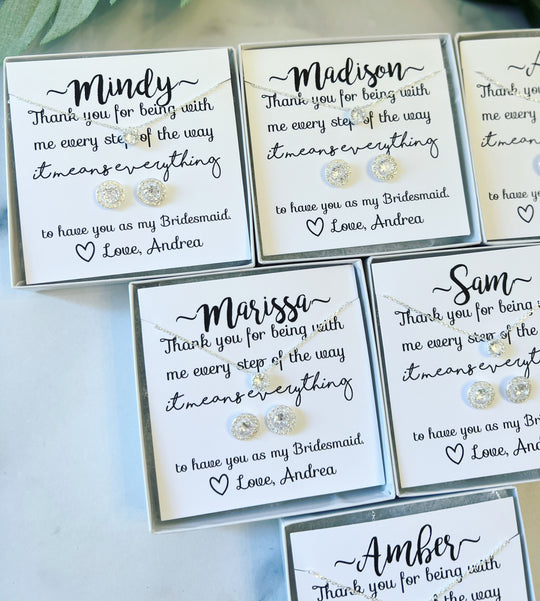 ~Mindy~
Thank you for being with
me every step of the way
it means everything
to have you as my Bridesmaid.
♡ Love, Andrea
~Madison~
Thank you for being with
me every step of the way
it means everything
to have you as my Bridesmaid.
♡ Love, Andrea
~A
Thank you
me every
it means
to have y
♡
~Marissa~
Thank you for being with
me every step of the way
it means everything
to have you as my Bridesmaid.
♡ Love, Andrea
~Sam~
Thank you for being
me every step of the
it means every
to have you as my Br
♡ Love, And
~Amber~
Thank you for being with
the way